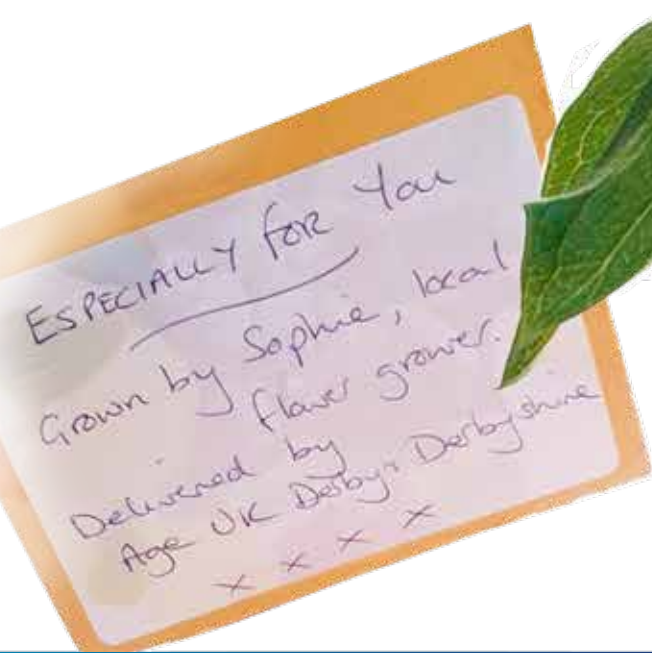 ESPECIALLY FOR You
Grown by Sophie, local
flower grower.
Delivered by
Age UK Derby + Derbyshire
x x x x